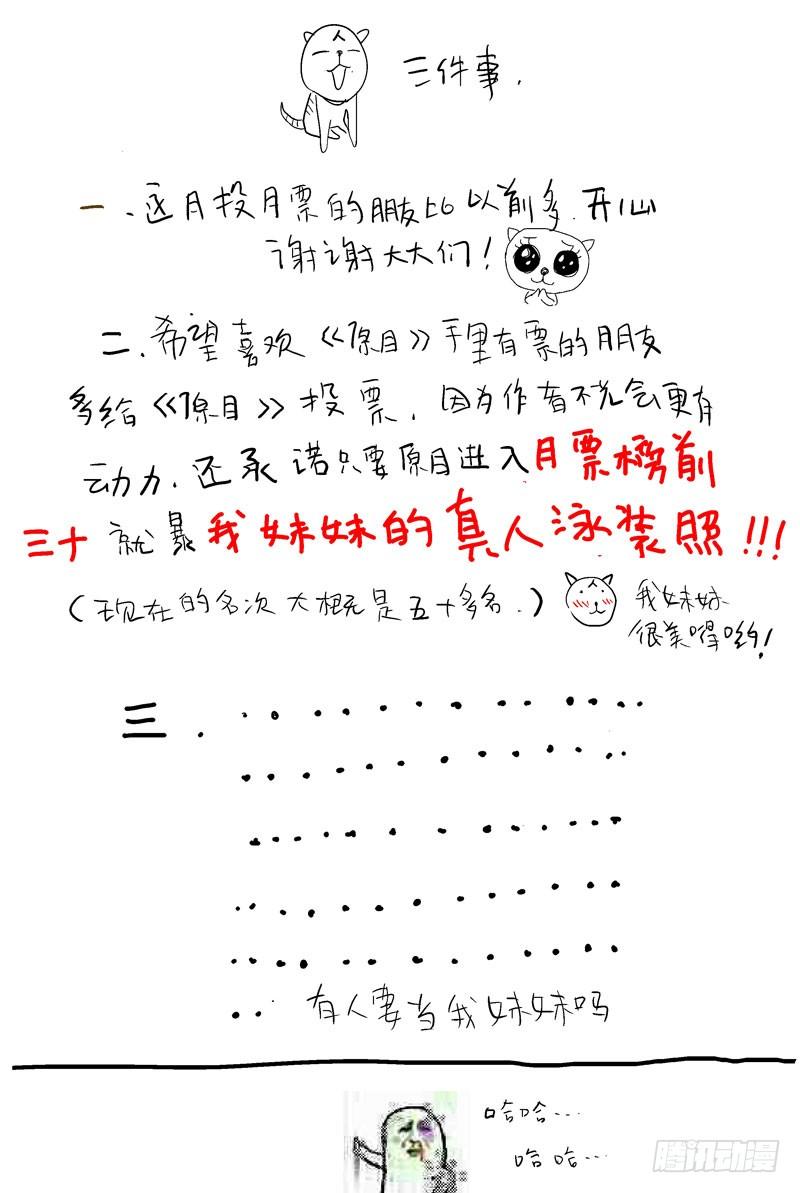 三件事.
一、这月投月票的朋友比以前多.开心
谢谢大大们！
二.希望喜欢《原目》手里有票的朋友
多给《原目》投票.因为作者不光会更有
动力.还承诺只要原目进入月票榜前
三十就暴我妹妹的真人泳装照!!!
(现在的名次大概是五十多名.)
我妹妹
很美嘚哟!
三.
有人要当我妹妹吗
哈哈...
哈哈...
腾讯动漫